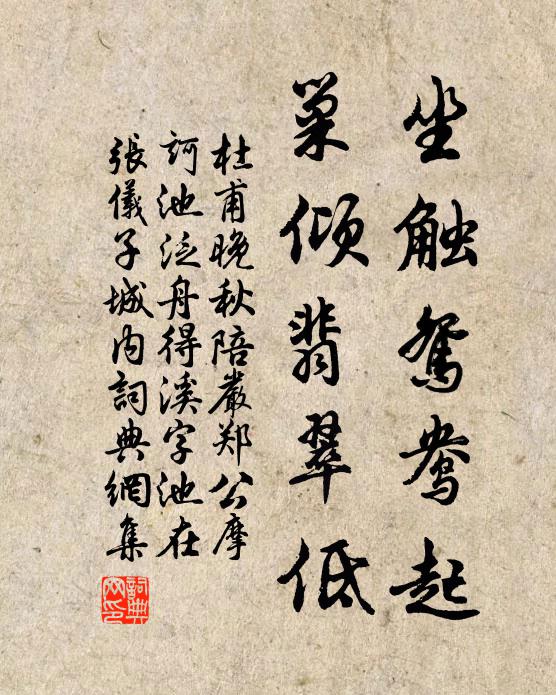 坐触鸳鸯起
巢倾翡翠低
杜甫晚秋陪嚴郑公摩
訶池泛舟得溪字池在
張儀子城内詞典網集
詞典网印